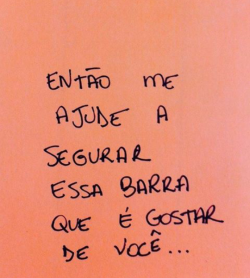 ENTÃO ME
AJUDE A
SEGURAR
ESSA BARRA
QUE É GOSTAR
DE VOCÊ...